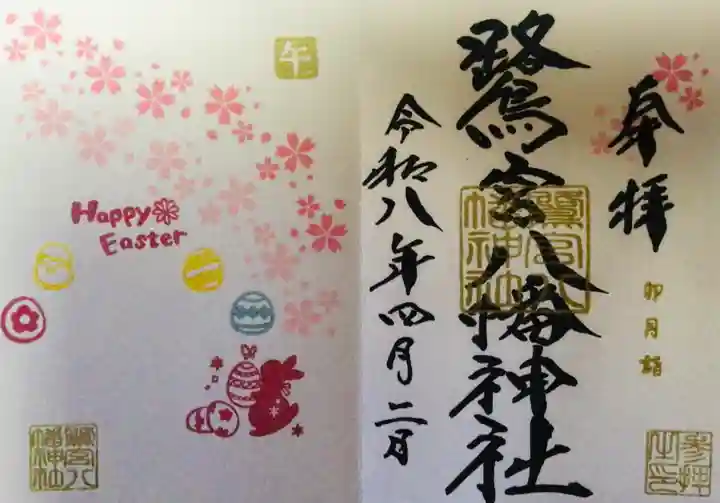 奉拝
卯月詣
参拝之印
鷺宮八幡神社
鷺宮八幡神社
令和八年四月二日
午
Happy
Easter
鷺宮八幡神社